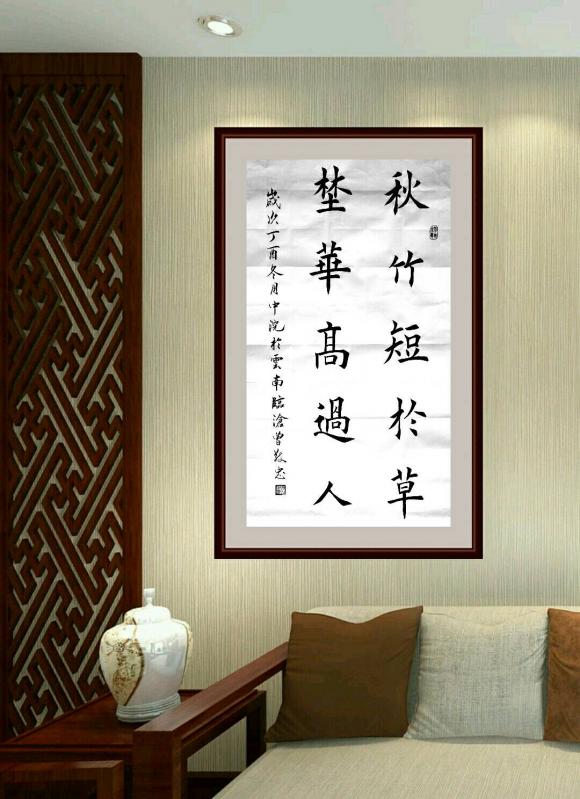 秋竹短於草
埜華髙過人
歲次丁酉冬月中浣於雲南臨滄曾忠